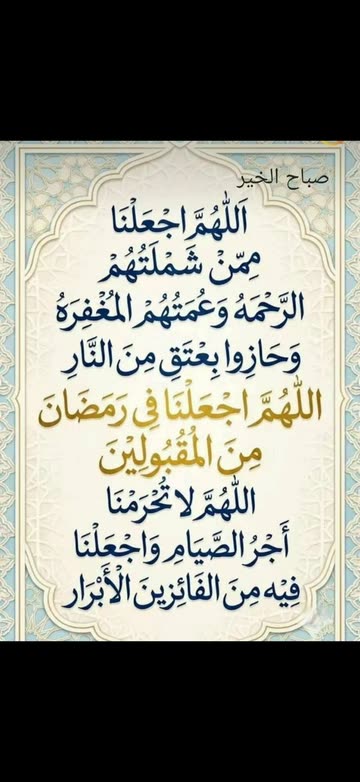 صباح الخير
اَللّٰهُمَّ اجْعَلْنَا
مِمّنْ شَمْلَتُهُمْ
الرَّحْمَهُ وَعُمَتُهُمْ المُغْفِرَهُ
وَحَازِوا بِعْتَقِ مِنَ النَّارِ
اللّٰهُمَّ اجْعَلْنَا فِي رَمَضَانَ
مِنَ المُقُبُولِيْنَ
اللّٰهُمَّ لا تُحْرَمْنَا
أَجْرُ الصَّيَامِ وَاجْعَلْنَا
فِيْه مِنَ الفَائِزينَ الْأَبْرَار